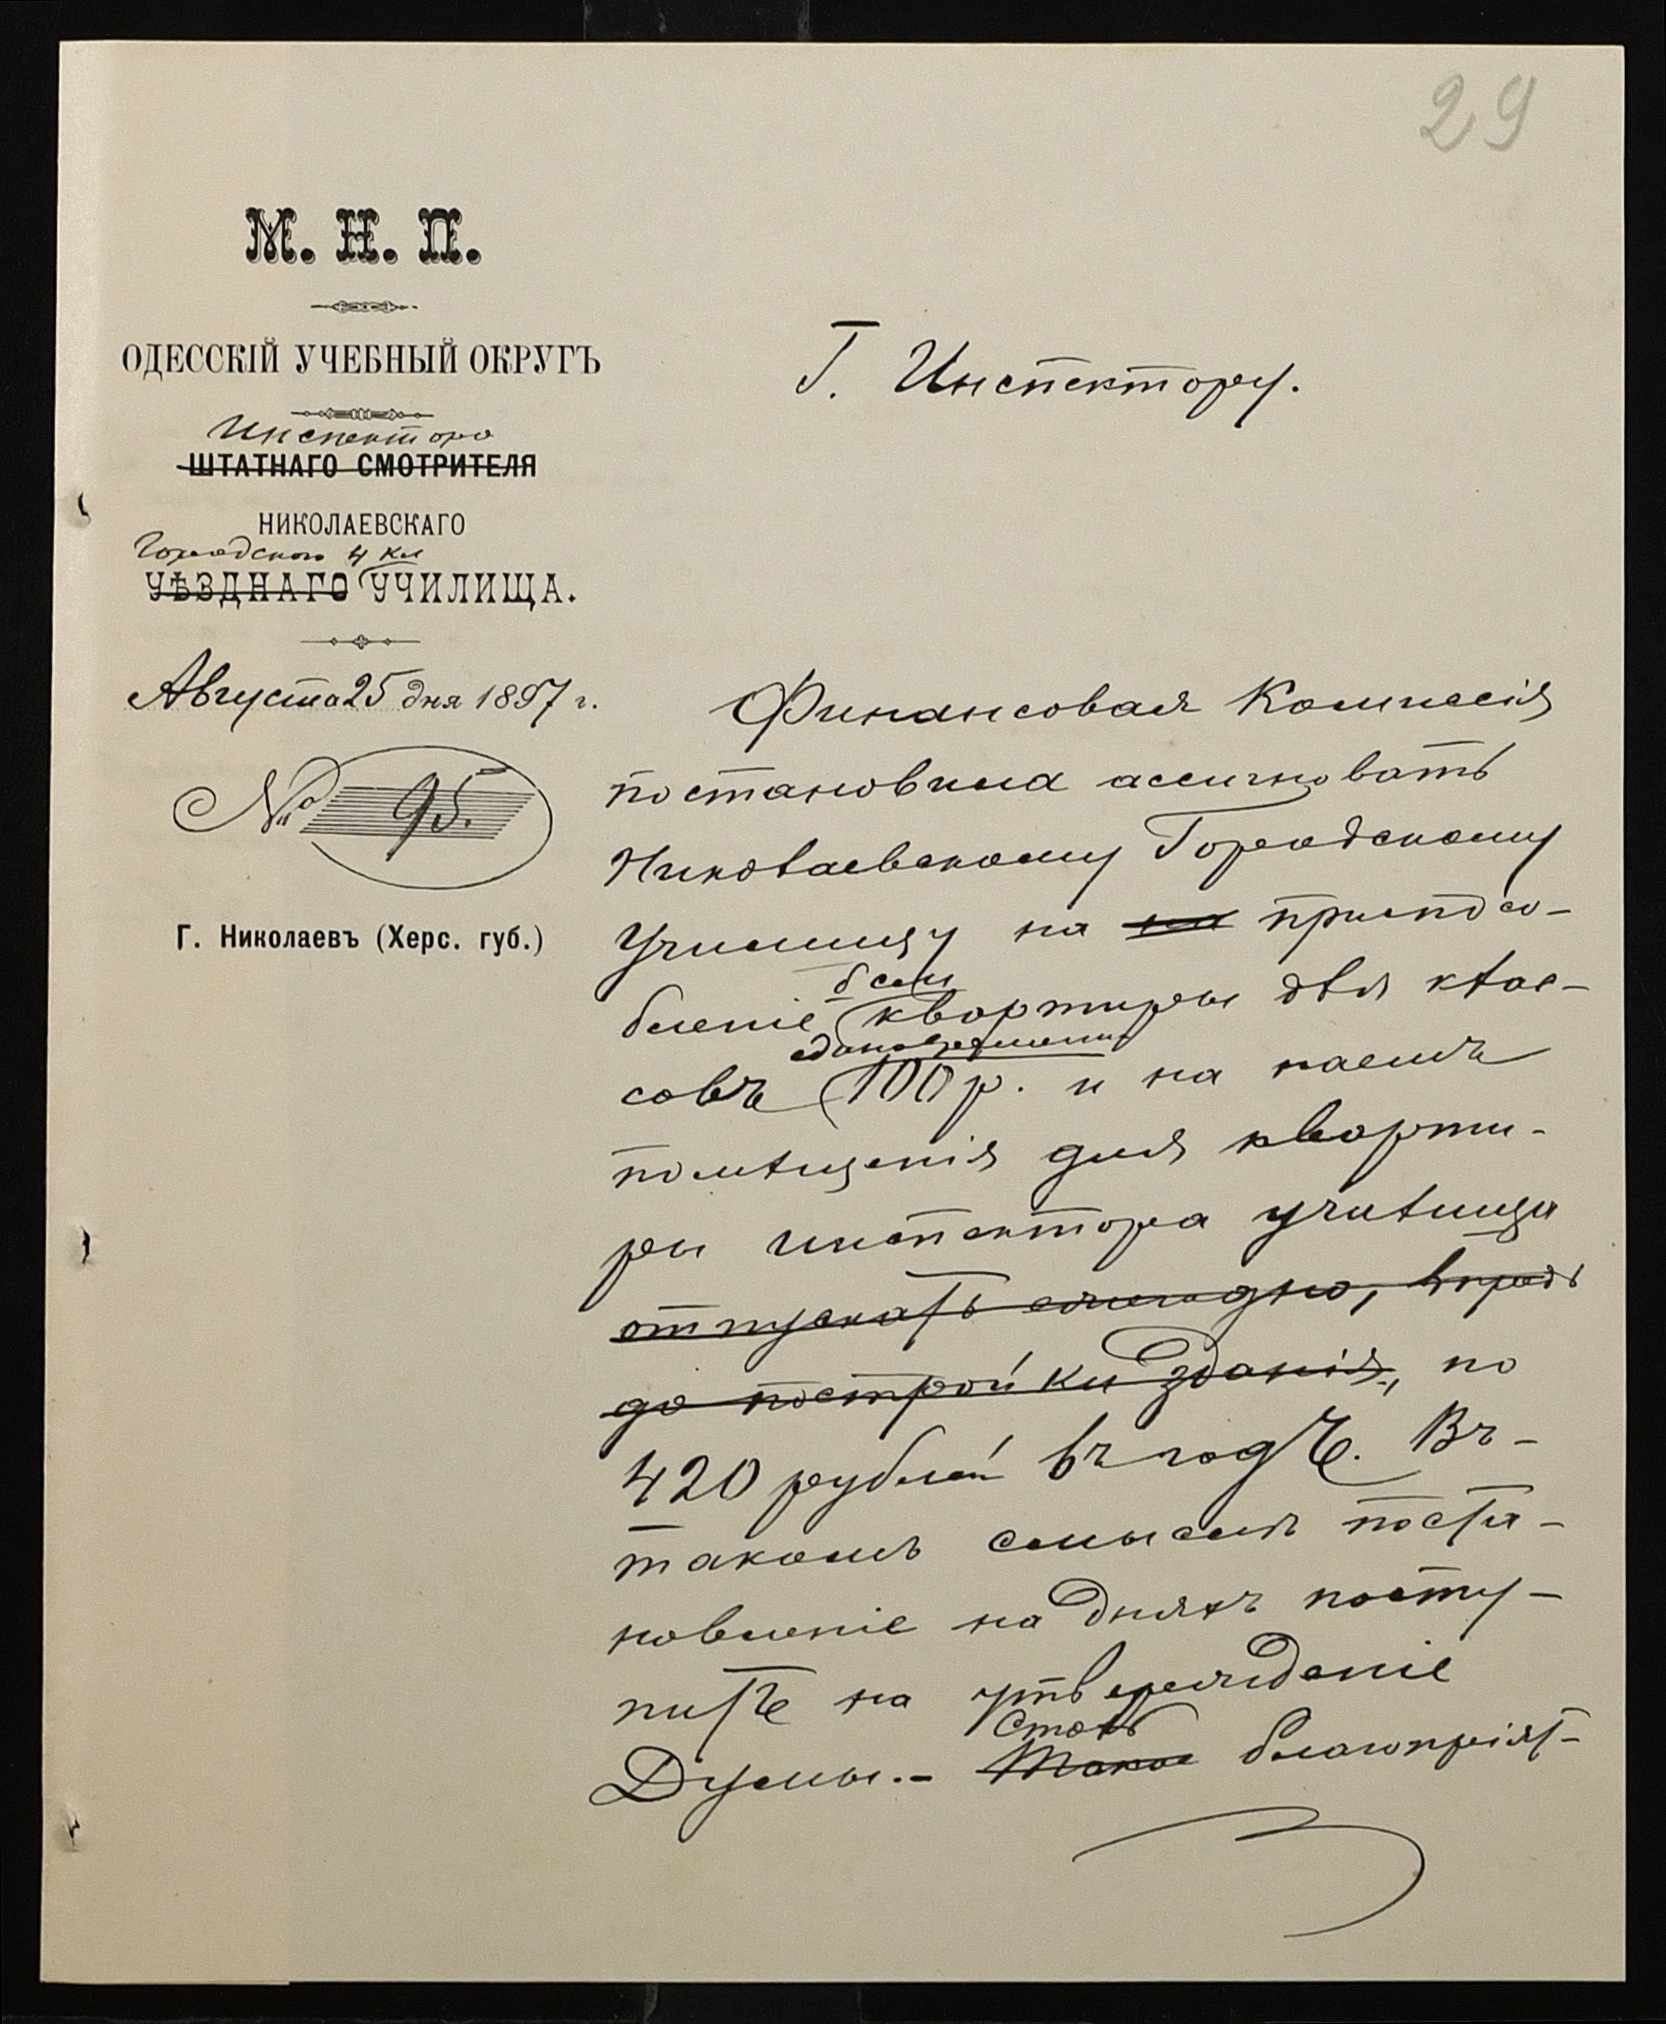 29
М. Н. П.
ОДЕССКІЙ УЧЕБНЫЙ ОКРУГЪ
Инспектора
ШТАТНАГО СМОТРИТЕЛЯ
НИКОЛАЕВСКАГО
Городского 4 кл
УѢЗДНАГО УЧИЛИЩА.
Августа 25 дня 1897 г.
№ 95.
Г. Николаевъ (Херс. губ.)
Г. Инспектору.
Финансовая Коммиссія
постановила ассигновать
Николаевскому Городскому
Училищу на на приспосо-
бленіе квартиры для клас-
единовременно
совъ 100 р. и на наемъ
помѣщенія для кварти-
ры инспектора училища
отпускать ежегодно, впредь
до постройки зданія, по
420 рублей въ годъ. Въ-
такомъ смыслѣ поста-
новленіе на дняхъ посту-
питъ на утвержденіе
Столь
Думы.- Такое благопріят-